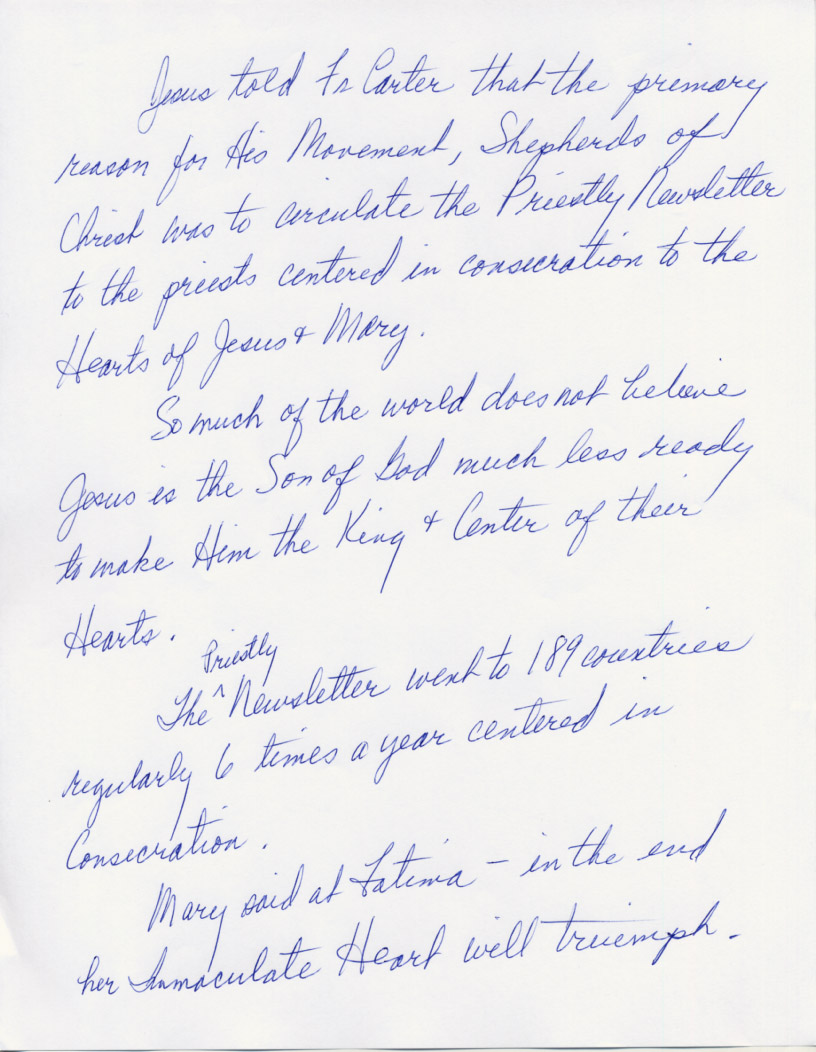 Jesus told Fr Carter that the primary
reason for His Movement, Shepherds of
Christ was to circulate the Priestly Newsletter
to the priests centered in consecration to the
Hearts of Jesus + Mary.
So much of the world does not believe
Jesus is the Son of God much less ready
to make Him the King + Center of their
Hearts.
Priestly
The ^ Newsletter went to 189 countries
regularly 6 times a year centered in
Consecration.
Mary said at Fatima - in the end
her Immaculate Heart will triumph.